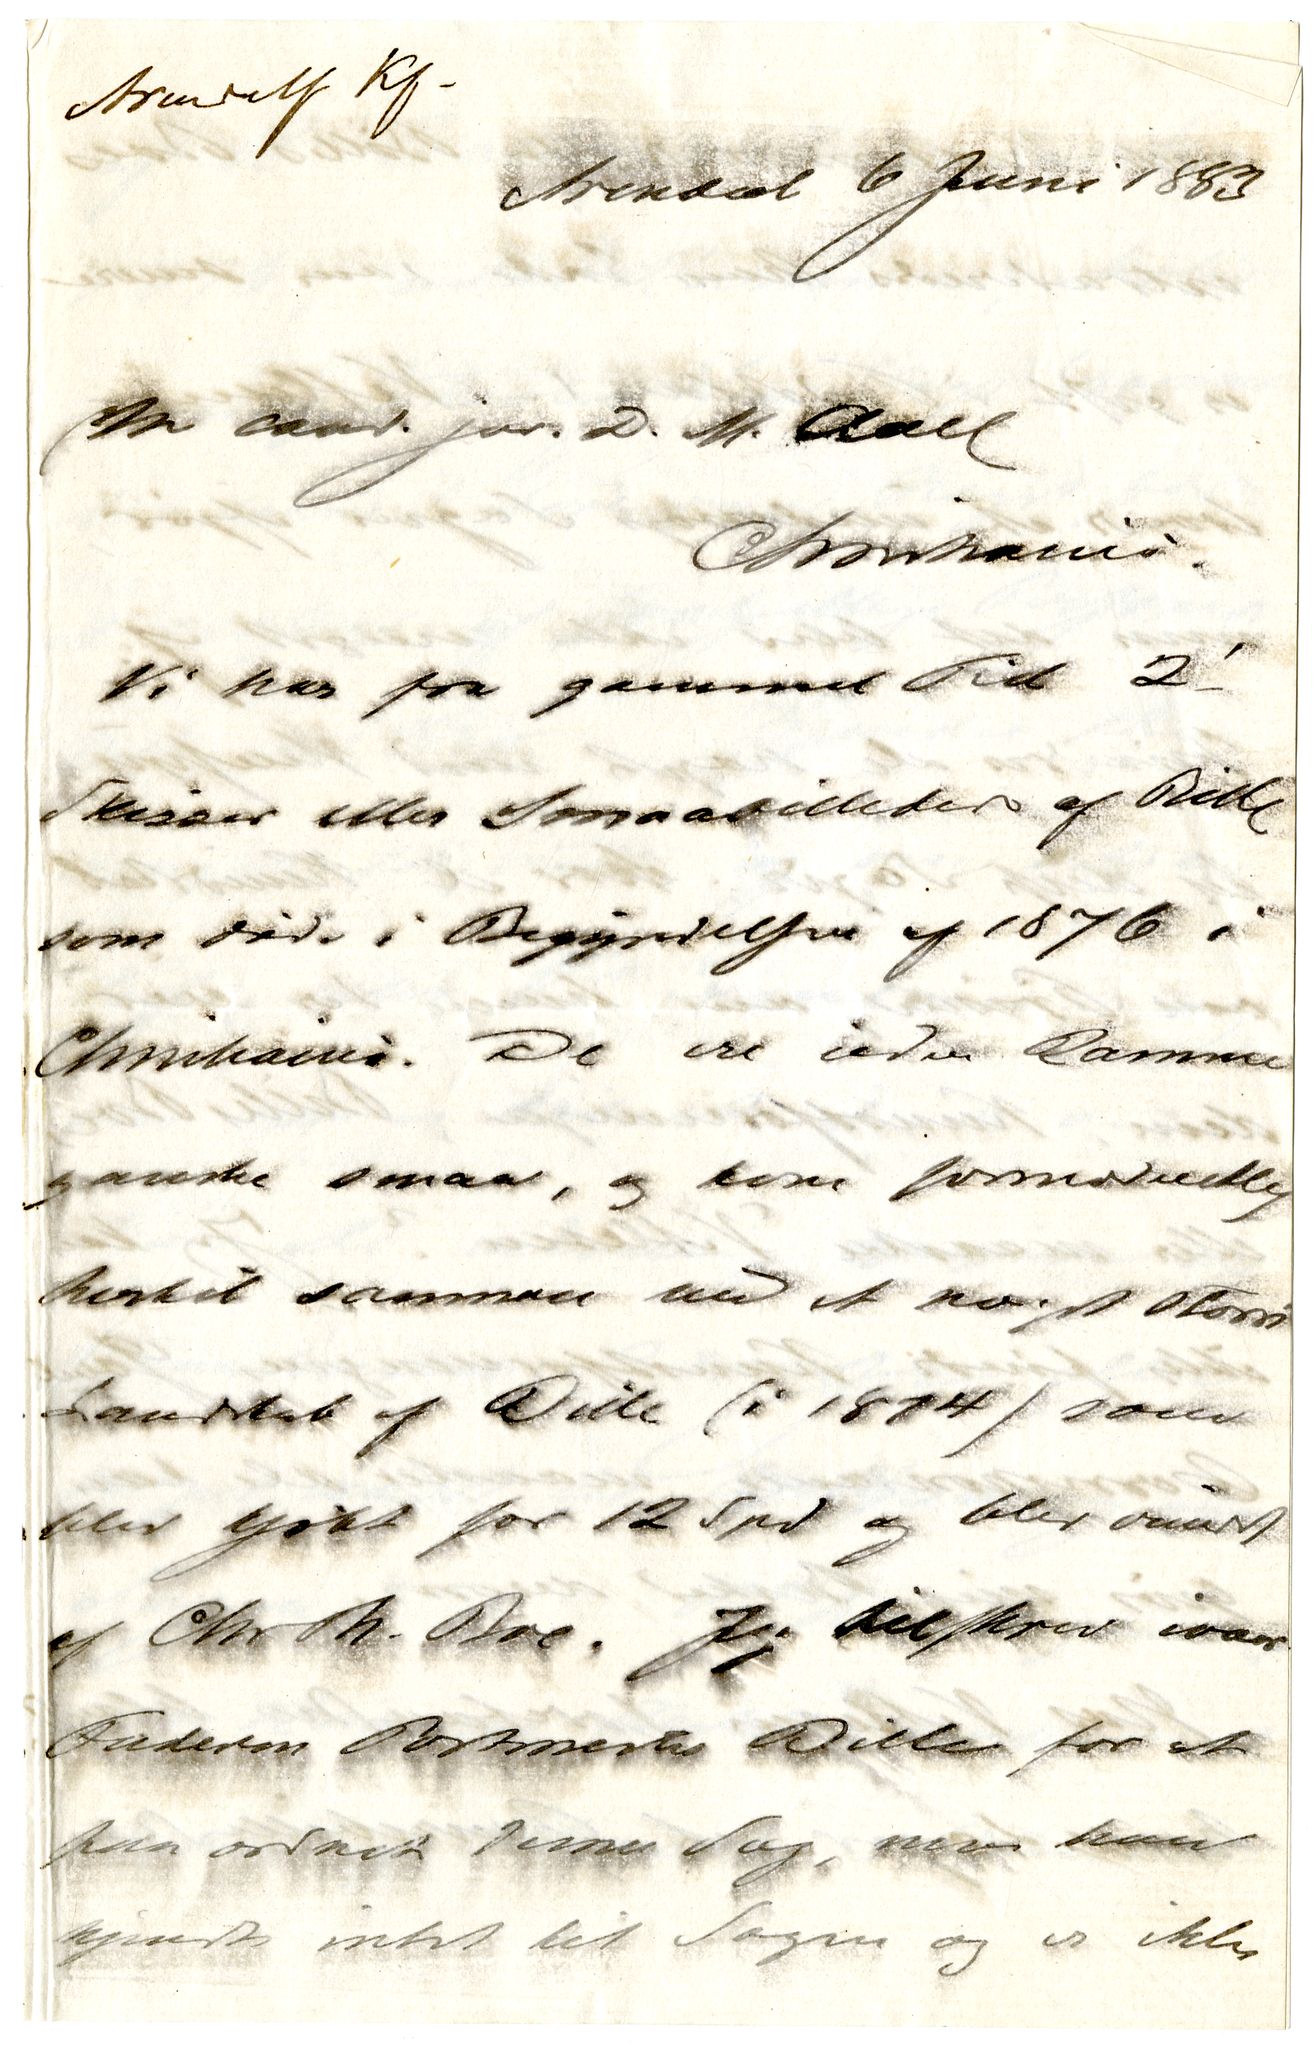 Arendals Kf-
Arendal 6 Juni 1883
Hr cand. jur. D. M. Aall
Christiania.
Vi har fra gammel Tid 2
Skizzer eller Smaabilleder af Dille
som døde i Begyndelsen af 1876 i
Christiania. De ere uden Ramme
ganske smaa, og kom formodentlig
hertil sammen med et noget større
Landskab af Dille (i 1874) som
blev kjøbt for 12 Spd og blev vundet
af Chr Th. Boe. Jeg tilskrev ivaar
Faderen Postmester Dille for at
faa ordnet denne Sag, men han
kjendte intet til Sagen og er ikke